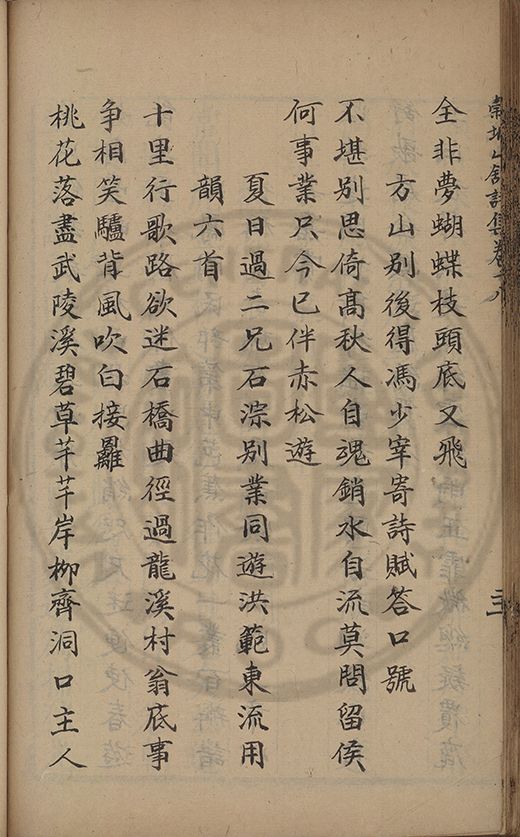 全非夢蝴蝶枝頭底又飛
方山別後得馮少宰寄詩賦答口號
不堪別思倚高秋人自魂銷水自流莫問留侯
何事業只今已伴赤松遊
夏日過二兄石淙別業同遊洪範東流用
韻六首
十里行歌路欲迷石橋曲徑過龍溪村翁底事
争相笑驢背風吹白接䍦
桃花落盡武陵溪碧草芊芊岸柳齊洞口主人